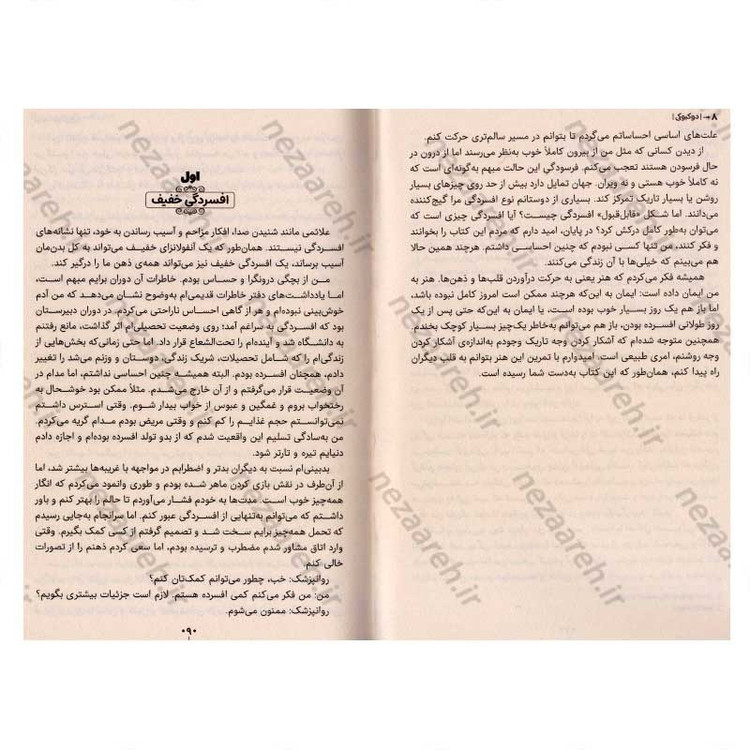 ۸ | دوکبوکی |
علت‌های اساسی احساساتم می‌گردم تا بتوانم در مسیر سالم‌تری حرکت کنم.
از دیدن کسانی که مثل من از بیرون کاملاً خوب به‌نظر می‌رسند اما از درون در
حال فرسودن هستند تعجب می‌کنم. فرسودگی این حالت مبهم به‌گونه‌ای است که
نه کاملاً خوب هستی و نه ویران. جهان تمایل دارد بیش از حد روی چیزهای بسیار
روشن یا بسیار تاریک تمرکز کند. بسیاری از دوستانم نوع افسردگی مرا گیج‌کننده
می‌دانند. اما شکل «قابل‌قبول» افسردگی چیست؟ آیا افسردگی چیزی است که
می‌توان به‌طور کامل درکش کرد؟ در پایان، امید دارم که مردم این کتاب را بخوانند
و فکر کنند، من تنها کسی نبودم که چنین احساسی داشتم. هرچند همین حالا
هم می‌بینم که خیلی‌ها با آن زندگی می‌کنند.
همیشه فکر می‌کردم که هنر یعنی به حرکت درآوردن قلب‌ها و ذهن‌ها. هنر به
من ایمان داده است: ایمان به این‌که هرچند ممکن است امروز کامل نبوده باشد،
اما باز هم یک روز بسیار خوب بوده است، یا ایمان به این‌که حتی پس از یک
روز طولانی افسرده بودن، باز هم می‌توانم به‌خاطر یک‌چیز بسیار کوچک بخندم.
همچنین متوجه شده‌ام که آشکار کردن وجه تاریک وجودم به‌اندازه‌ی آشکار کردن
وجه روشنم، امری طبیعی است. امیدوارم با تمرین این هنر بتوانم به قلب دیگران
راه پیدا کنم، همان‌طور که این کتاب به‌دست شما رسیده است.
اول
افسردگی خفیف
علائمی مانند شنیدن صدا، افکار مزاحم و آسیب رساندن به خود، تنها نشانه‌های
افسردگی نیستند. همان‌طور که یک آنفولانزای خفیف می‌تواند به کل بدن‌مان
آسیب برساند، یک افسردگی خفیف نیز می‌تواند همه‌ی ذهن ما را درگیر کند.
من از بچگی درونگرا و حساس بودم. خاطرات آن دوران برایم مبهم است،
اما یادداشت‌های دفتر خاطرات قدیمی‌ام به‌وضوح نشان می‌دهد که من آدم
خوش‌بینی نبوده‌ام و هر از گاهی احساس ناراحتی می‌کردم. در دوران دبیرستان
بود که افسردگی به سراغم آمد؛ روی وضعیت تحصیلی‌ام اثر گذاشت، مانع رفتنم
به دانشگاه شد و آینده‌ام را تحت‌الشعاع قرار داد. اما حتی زمانی‌که بخش‌هایی از
زندگی‌ام را که شامل تحصیلات، شریک زندگی، دوستان و وزنم می‌شد را تغییر
دادم، همچنان افسرده بودم. البته همیشه چنین احساسی نداشتم، اما مدام در
آن وضعیت قرار می‌گرفتم و از آن خارج می‌شدم. مثلاً ممکن بود خوشحال به
رختخواب بروم و غمگین و عبوس از خواب بیدار شوم. وقتی استرس داشتم
نمی‌توانستم حجم غذایم را کم کنم و وقتی مریض بودم مدام گریه می‌کردم.
من به‌سادگی تسلیم این واقعیت شدم که از بدو تولد افسرده بوده‌ام و اجازه دادم
دنیایم تیره و تارتر شود.
بدبینی‌ام نسبت به دیگران بدتر و اضطرابم در مواجهه با غریبه‌ها بیشتر شد، اما
از آن‌طرف در نقش بازی کردن ماهر شده بودم و طوری وانمود می‌کردم که انگار
همه‌چیز خوب است. مدت‌ها به خودم فشار می‌آوردم تا حالم را بهتر کنم و باور
داشتم که می‌توانم به‌تنهایی از افسردگی عبور کنم. اما سرانجام به‌جایی رسیدم
که تحمل همه‌چیز برایم سخت شد و تصمیم گرفتم از کسی کمک بگیرم. وقتی
وارد اتاق مشاور شدم مضطرب و ترسیده بودم، اما سعی کردم ذهنم را از تصورات
خالی کنم.
روانپزشک: خب، چطور می‌توانم کمک‌تان کنم؟
من: من فکر می‌کنم کمی افسرده هستم. لازم است جزئیات بیشتری بگویم؟
روانپزشک: ممنون می‌شوم.
۰۹۰
nezaareh.ir
nezaareh.ir
nezaareh.ir
nezaareh.ir
nezaareh.ir
nezaareh.ir
nezaareh.ir